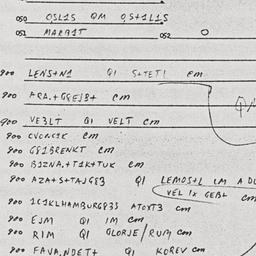 050 OSL1S QM QS+1L1S
051 MARB1T 052 O
900 LENS+N1 Q1 S+TET1 cm
900 ARA.+GGEJB+ cm
900 VE3LT Q1 VELT cm
900 CVONC1K cm
900 G81BRENKT cm
900 B1ZNA,+T1K+TUK cm
900 AZA+S+TAJG83 Q1 LEMDS+L 1M A DU
VEL 1X GEB+ cm
900 1C1KLHAMBURG833 ATOXT3 cm
900 EJM Q1 1M cm
900 R1M Q1 GLORJE/RUM cm
900 FAVA,NDET+ Q1 KOREV cm